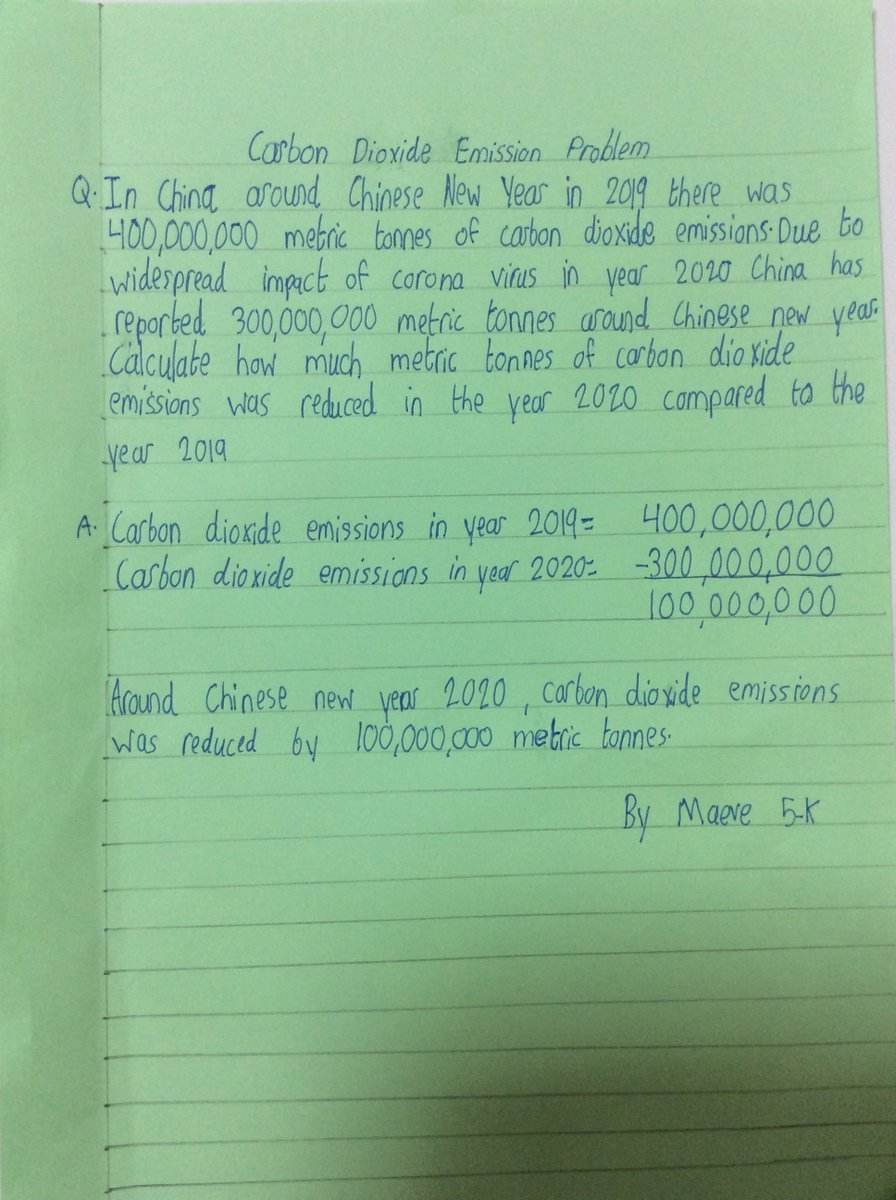 Carbon Dioxide Emission Problem
Q. In China around Chinese New Year in 2019 there was
400,000,000 metric tonnes of carbon dioxide emissions. Due to
widespread impact of corona virus in year 2020 China has
reported 300,000,000 metric tonnes around Chinese new year.
Calculate how much metric tonnes of carbon dioxide
emissions was reduced in the year 2020 compared to the
year 2019
A. Carbon dioxide emissions in year 2019= 400,000,000
Carbon dioxide emissions in year 2020= -300,000,000
100,000,000
Around Chinese new year 2020, carbon dioxide emissions
was reduced by 100,000,000 metric tonnes.
By Maeve 5-K